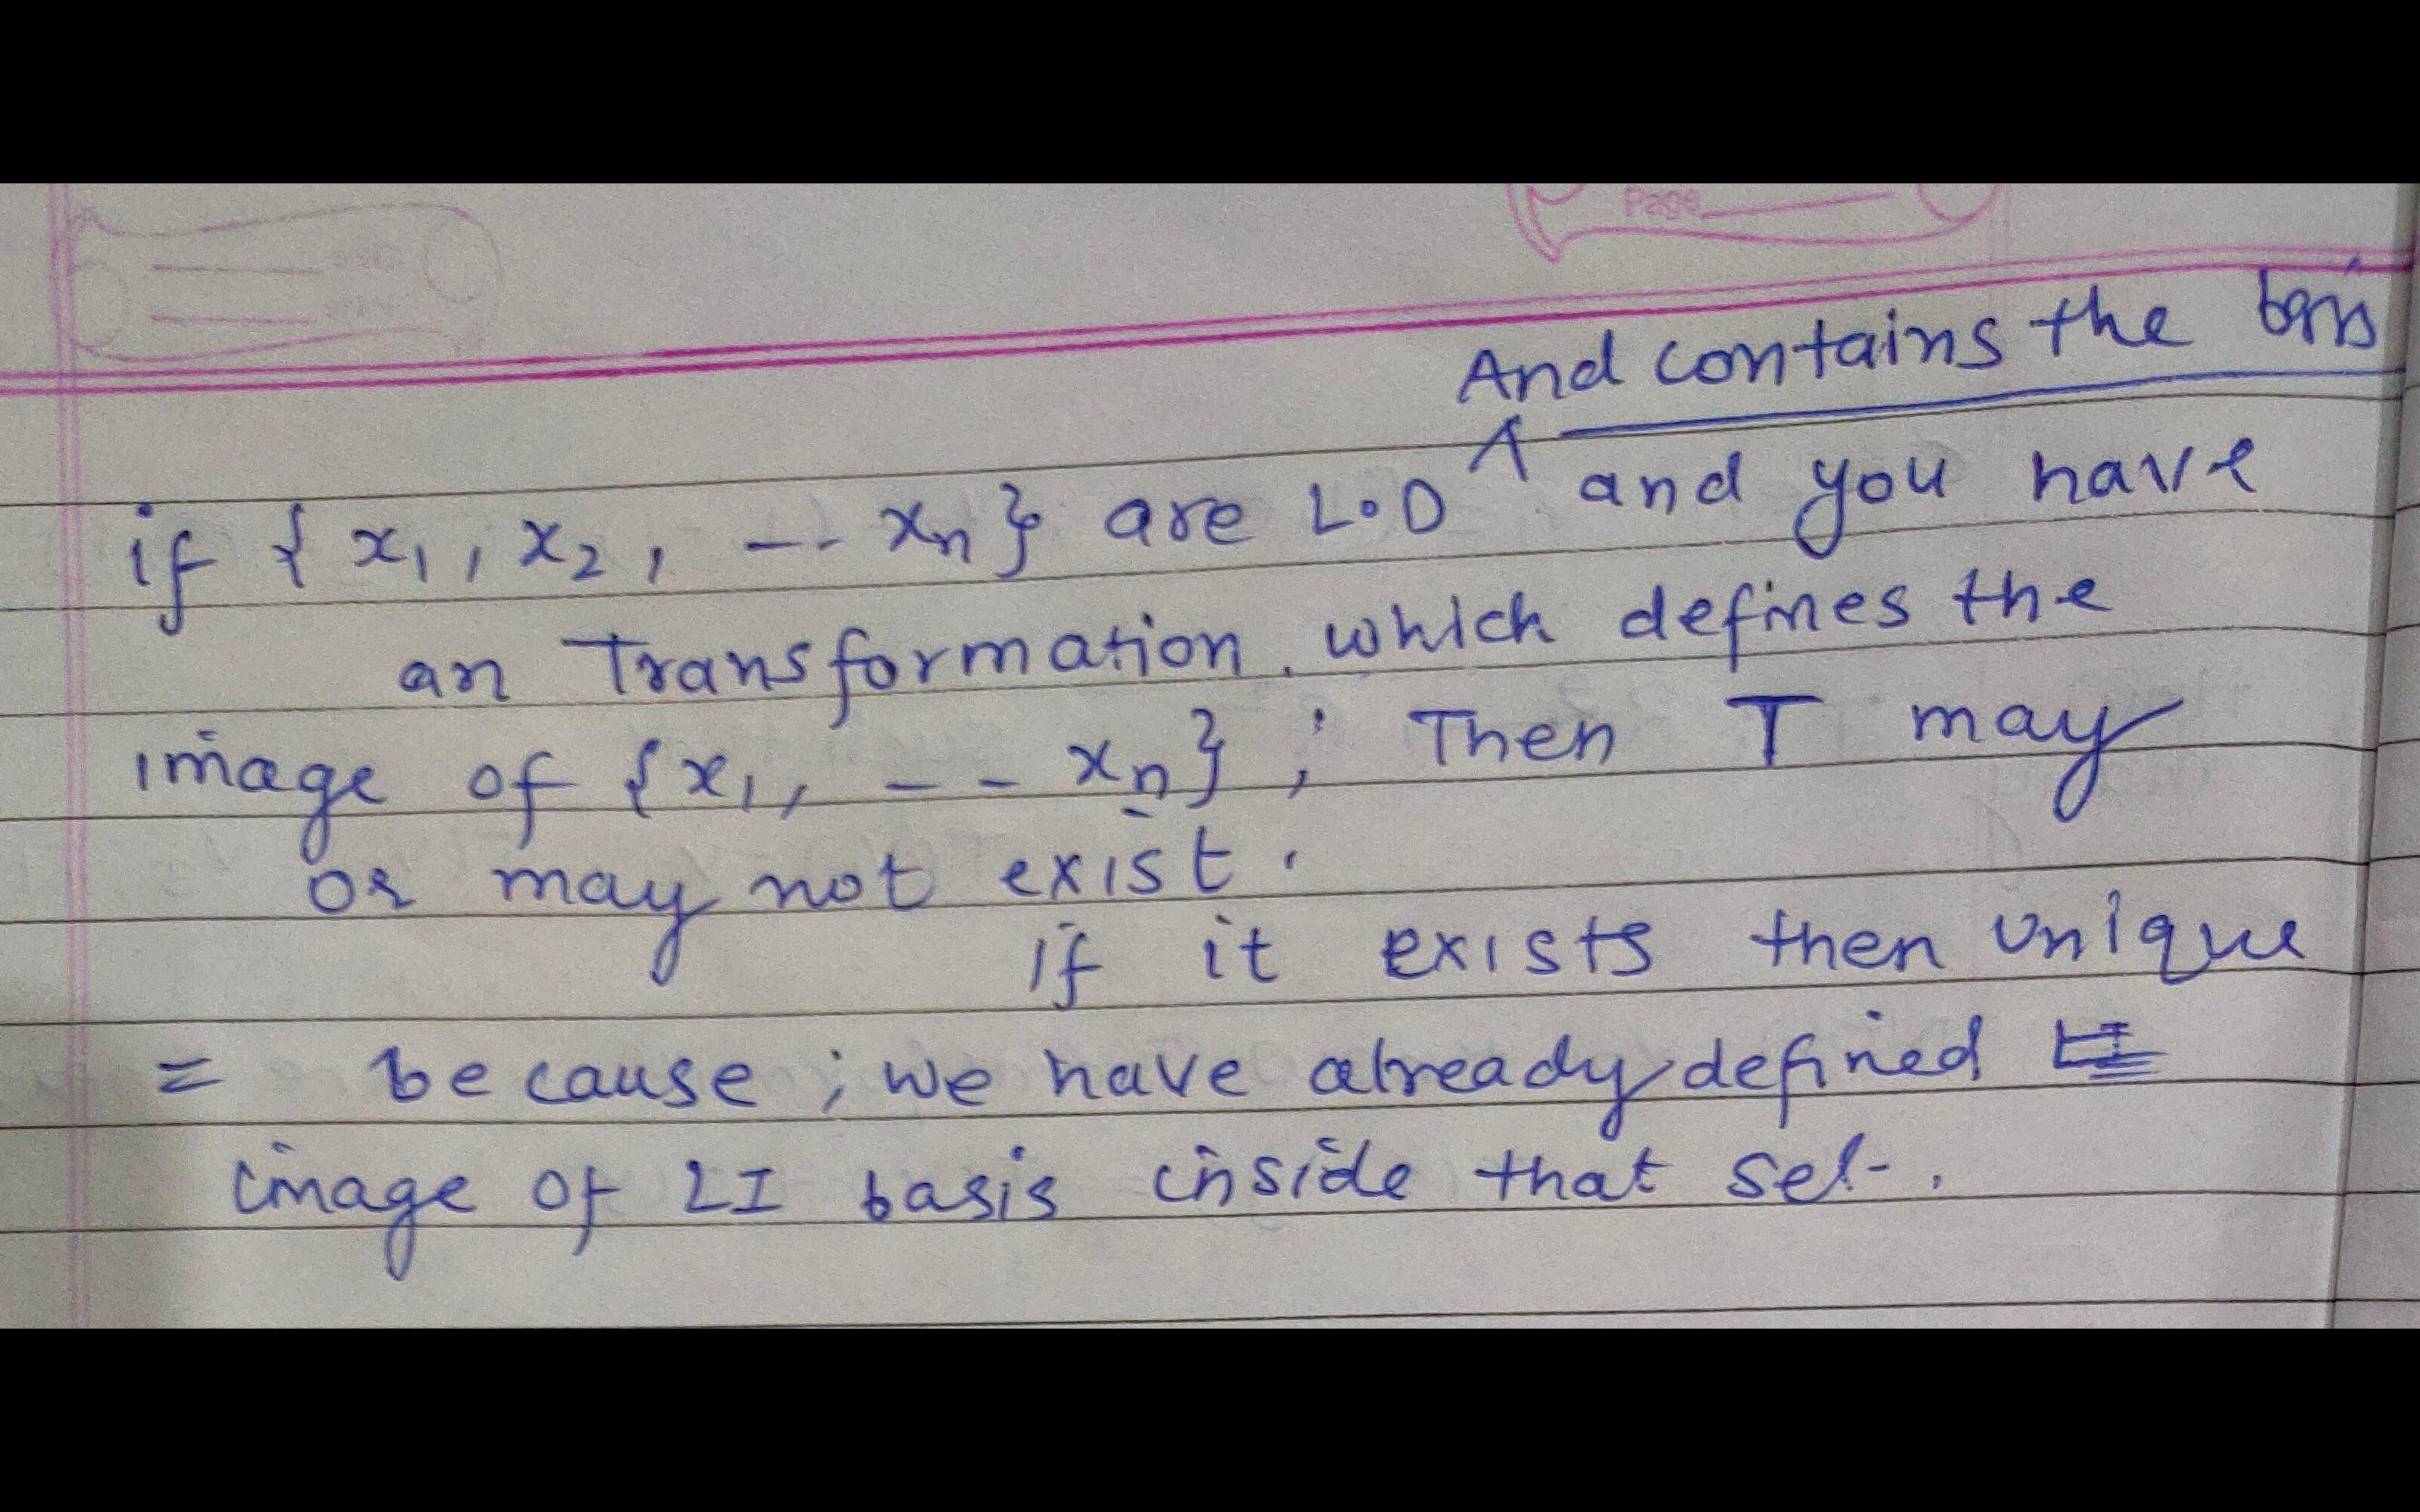 Page
And contains the basis
if { x₁, x₂, --- xₙ} are L.D ^ and you have
an Transformation. which defines the
image of {x₁, -- xₙ} ; Then T may
or may not exist.
if it exists then unique
= because ; we have already defined
image of LI basis inside that set.